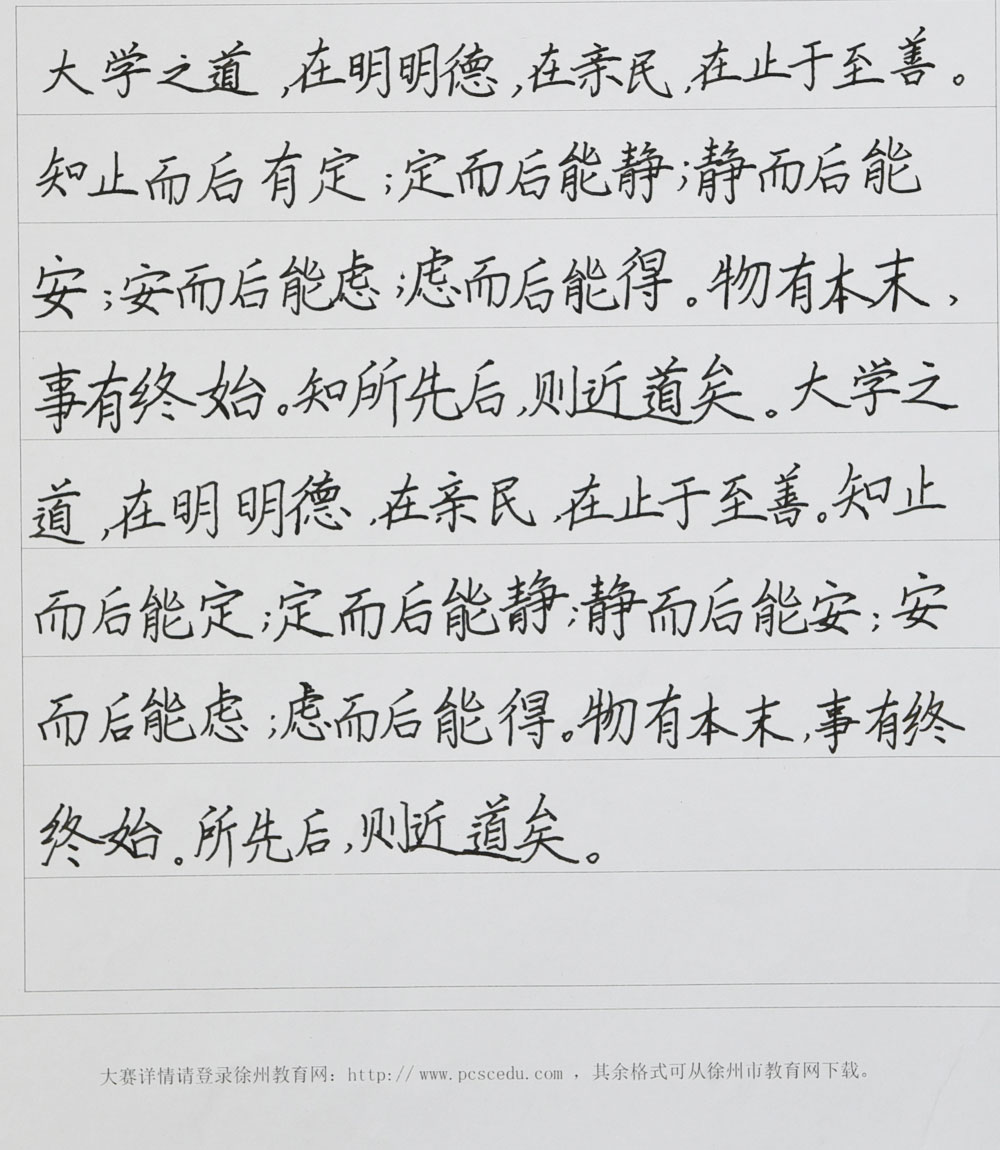 大学之道,在明明德,在亲民,在止于至善。
知止而后有定;定而后能静;静而后能
安;安而后能虑;虑而后能得。物有本末,
事有终始。知所先后,则近道矣。大学之
道,在明明德,在亲民,在止于至善。知止
而后能定;定而后能静;静而后能安;安
而后能虑;虑而后能得。物有本末,事有终
终始。所先后,则近道矣。
大赛详情请登录徐州教育网：http://www.pcscedu.com ，其余格式可从徐州市教育网下载。